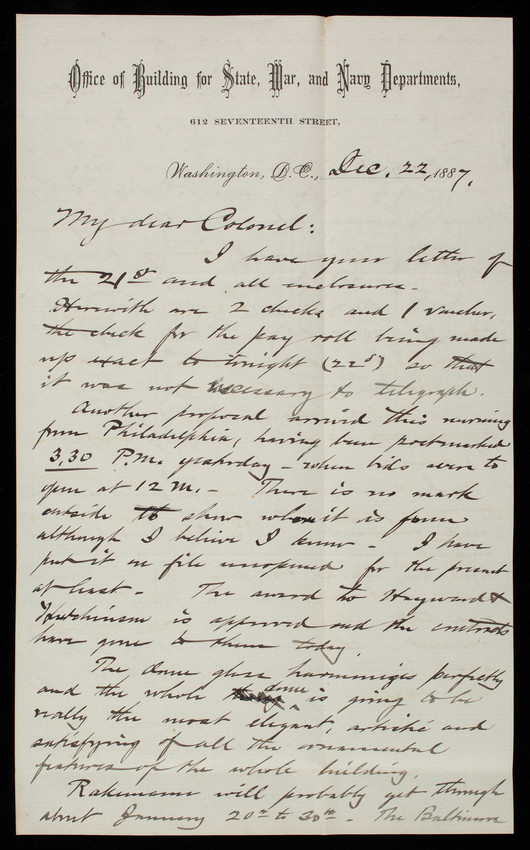 Office of Building for State, War, and Navy Departments,
612 SEVENTEENTH STREET,
Washington, D.C., Dec. 22, 1887.
My dear Colonel:
I have your letter of
the 21st and all enclosures.
Herewith are 2 checks and 1 voucher,
the check for the pay roll being made
up exact to tonight (22d) so that
it was not necessary to telegraph.
Another proposal arrived this morning
from Philadelphia, having been postmarked
3.30 P.M. yesterday - when bids were to
open at 12 M. - There is no mark
outside to show whom it is from
although I believe I know - I have
put it on file unopened for the present
at least - The award to Hayward &
Hutchinson is approved and the contracts
have gone to them today.
The dome glass harmonizes perfectly
and the whole dome is going to be
really the most elegant, artistic and
satisfying of all the ornamental
features of the whole building.
Rakemann will probably get through
about January 20th to 30th - The Baltimore